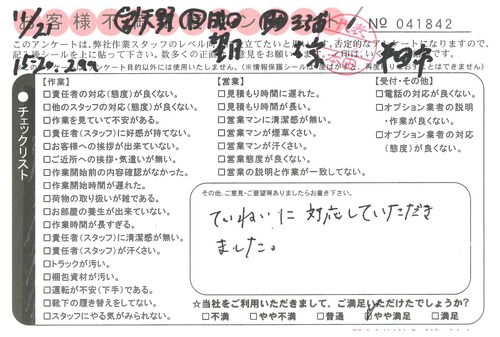 お客様不
No 041842
11/21
15-20-299
このアンケートは、弊社作業スタッフのレベル向
チェックリスト
【作業】
□責任者の対応(態度)が良くない。
□他のスタッフの対応(態度)が良くない。
□作業を見ていて不安がある。
□責任者(スタッフ)に好感が持てない。
□お客様への挨拶が出来ていない。
□ご近所への挨拶・気遣いが無い。
□作業開始前の内容確認がなかった。
□作業開始時間が遅れた。
□荷物の取り扱いが雑である。
□お部屋の養生が出来ていない。
□作業時間が長すぎる。
□責任者(スタッフ)に清潔感が無い。
□責任者(スタッフ)が汗くさい。
□トラックが汚い。
□梱包資材が汚い。
□運転が不安(下手)である。
□靴下の履き替えをしてない。
□スタッフにやる気がみられない。
【営業】
□見積もり時間に遅れた。
□見積もり時間が長い。
□営業マンに清潔感が無い。
□営業マンが煙草くさい。
□営業マンが汗くさい。
□営業態度が良くない。
□営業の説明と作業が一致してない。
【受付・その他】
□電話の対応が良くない。
□オプション業者の説明・作業が良くない。
□オプション業者の対応(態度)が良くない。
その他、ご意見・ご要望等ありましたらお書き下さい。
ていねいに対応していただき
ました。
☆当社をご利用いただきまして、ご満足いただけたでしょうか?
□不満 □やや不満 □普通 ☑やや満足 □満足